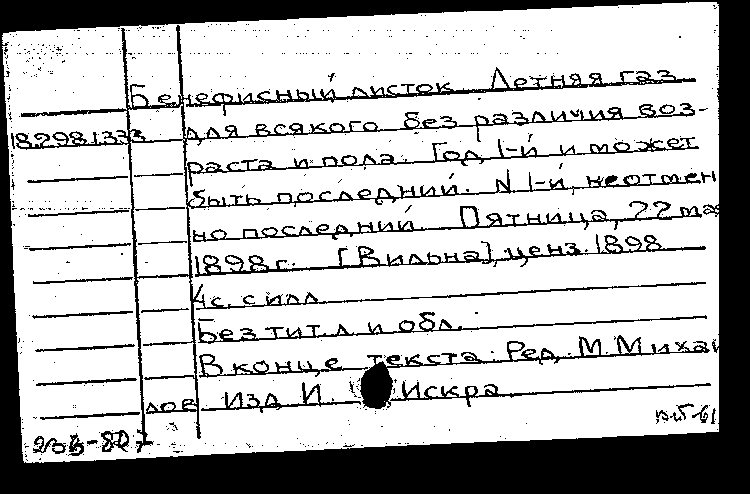 Бенефисный листок. Летняя газ.
18298.1333 для всякого без различия воз-
раста и пола. Год 1-й и может
быть последний. N 1-й, неотмен
но последний. Пятница, 22 мая
1898 г. [Вильна], ценз. 1898
4 с. с илл.
Без тит. л. и обл.
В конце текста: Ред. М. Михай
лов Изд. И. Искра